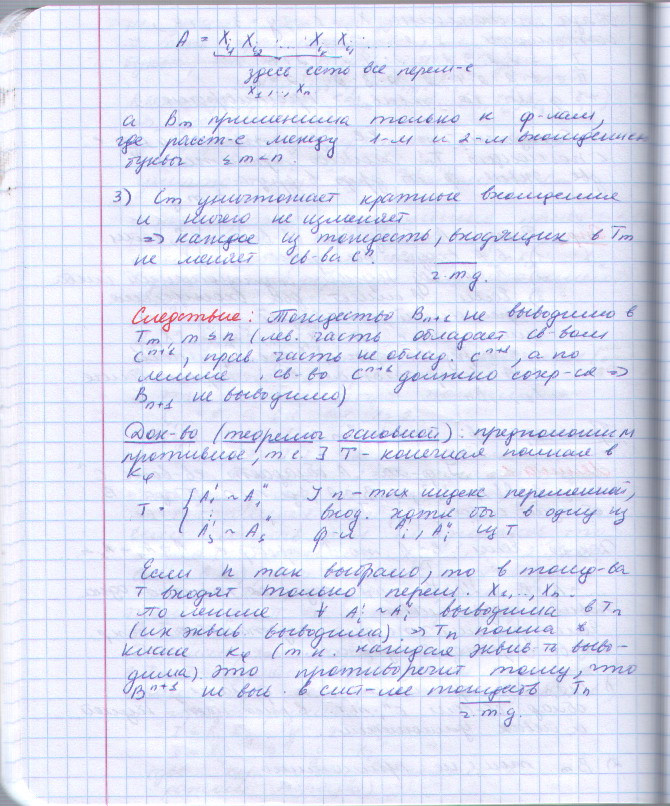 A = X_{i_1} X_{i_2} ... X_{i_r} X_{i_1} ...
здесь есть все перем-е
X_1, .., X_n
а B_m применима только к ф-лам,
где расст-е между 1-м и 2-м вхождением
буквы ≤ m < n.
3) C_m уничтожает кратные вхождения
и ничего не изменяет
=> каждое из тождеств, входящих в T_m
не меняет св-ва C^n.
ч.т.д.
Следствие: Тождество B_{n+1} не выводимо в
T_m, m ≤ n (лев. часть обладает св-вом
C^{n+1}, прав. часть не облад. C^{n+1}, а по
лемме св-во C^{n+1} должно сохр-ся =>
B_{n+1} не выводимо)
Док-во (теоремы основной): предположим
противное, т.е. ∃ T - конечная полная в
K_φ
T = { A'_1 ~ A''_1 ∃ n - max индекс переменной,
⋮ вход. хотя бы в одну из
A'_s ~ A''_s ф-л A'_i, A''_i из T
Если n так выбрано, то в тожд-ва
T входят только перем. X_1, .., X_n.
По лемме ∀ A'_i ~ A''_i выводима в T_n
(их эквив. выводима) => T_n полна в
классе K_φ (т.к. каждая эквив-ть выво-
дима). Это противоречит тому, что
B^{n+1} не выв. в сист-ме тождеств T_n
ч.т.д.